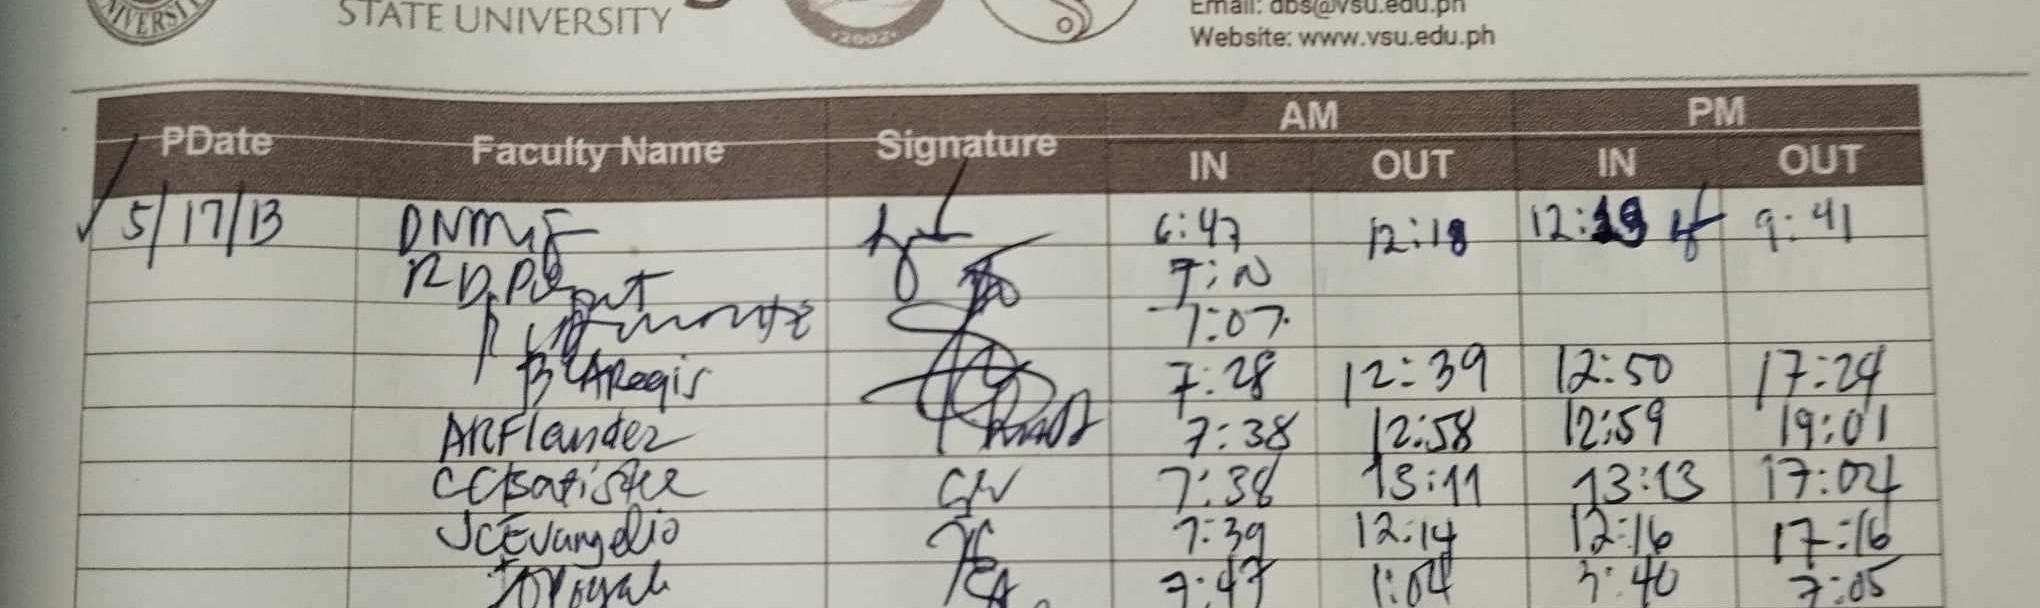 VERSIT
STATE UNIVERSITY
·2002·
Email: dbs@vsu.edu.ph
Website: www.vsu.edu.ph
PDate Faculty Name Signature AM PM
IN OUT IN OUT
5/17/13 6:47 12:18 12:19 9:41
RD
7:07
BCARegis 7:28 12:39 12:50 17:24
ARFlandez 7:38 12:58 12:59 19:01
CCBatistel 7:38 13:11 13:13 17:04
JCEvangelio 7:39 12:14 12:16 17:16
7:47 1:04 3:40 7:05